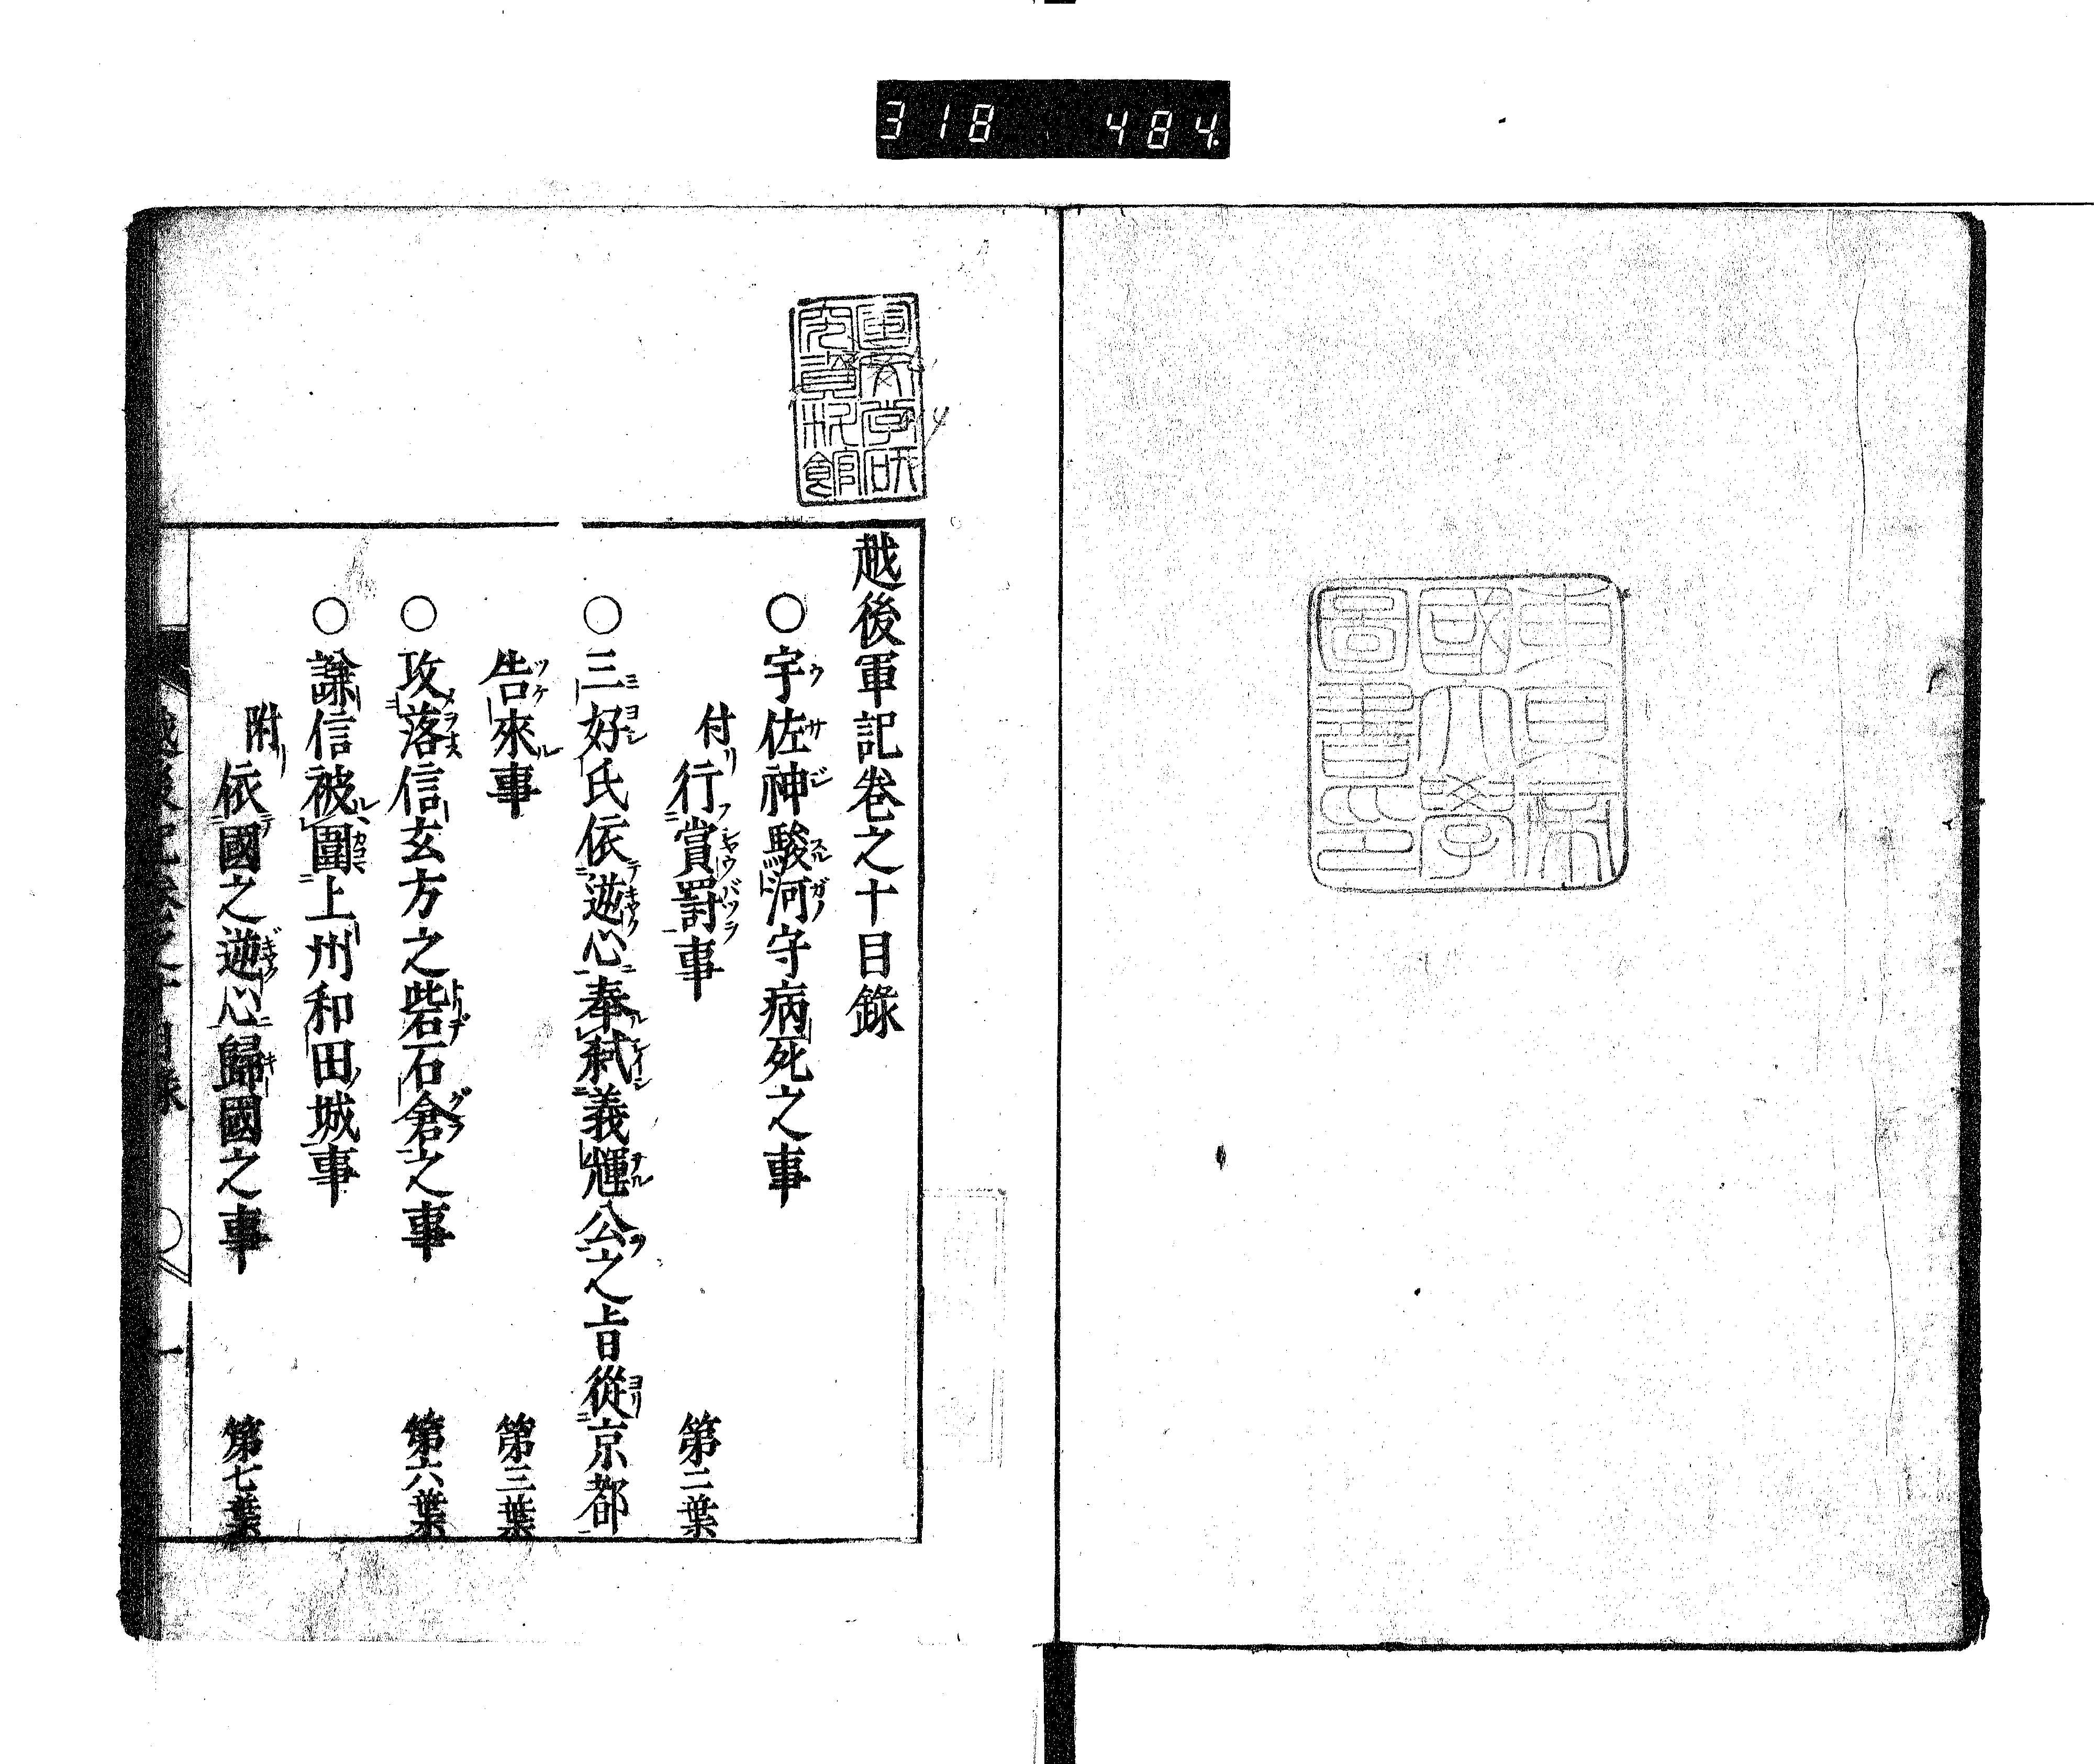 318 484
東京帝
國大學
圖書印
國文学研
究資料館
越後軍記卷之十目錄
○宇佐神駿河守病死之事
付行賞罸事 第二葉
○三好氏依逆心奉弑義輝公之旨從京都
告來事 第三葉
○攻落信玄方之砦石倉之事 第六葉
○謙信被圍上州和田城事
附依國之逆心歸國之事 第七葉